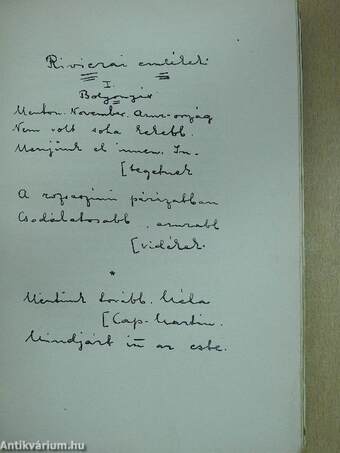 Rivierai emlékek
I.
Bolyongás
Menton. November. Azur-ország
Nem volt soha kékebb.
Menjünk el innen. In-
[tegetnek
A rózsaszínű párázatban
Csodálatosabb, azurabb
[vidékek.
*
Mentünk tovább. Hála
[Cap-Martin.
Mindjárt itt az este.
Antikvárium.hu